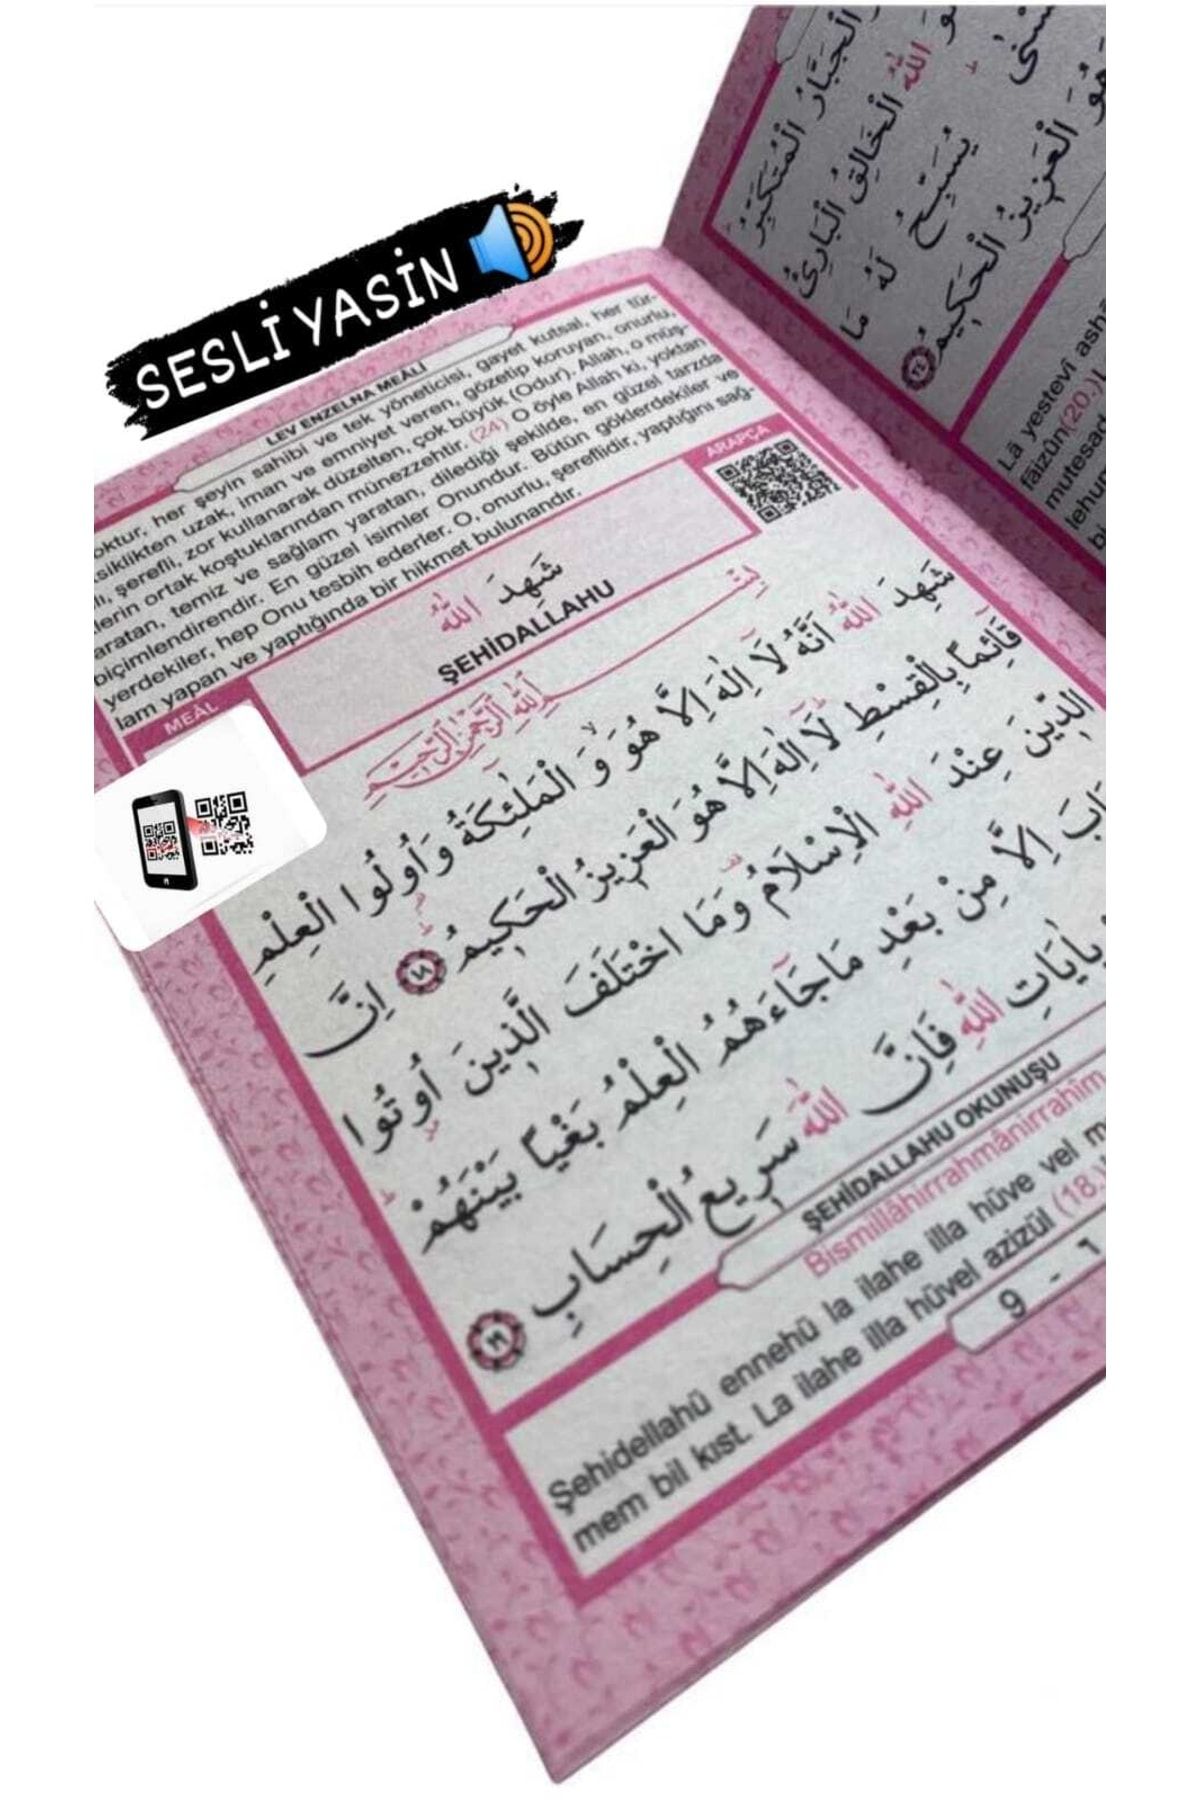 SESLİ YASİN
LEV ENZELNA MEÂLİ
her şeyin sahibi ve tek yöneticisi, gayet kutsal, her tür-
uzak, iman ve emniyet veren, gözetip koruyan, onurlu,
şerefli, zor kullanarak düzelten, çok büyük (Odur). Allah, o müş-
lerin ortak koştuklarından münezzehtir. (24) O öyle Allah ki, yoktan
temiz ve sağlam yaratan, dilediği şekilde, en güzel tarzda
biçimlendirendir. En güzel isimler Onundur. Bütün göklerdekiler ve
yerdekiler, hep Onu tesbih ederler. O, onurlu, şereflidir, yaptığını sağ-
lam yapan ve yaptığında bir hikmet bulunandır.
MEÂL
ARAPÇA
شَهِدَ اللّٰهُ
ŞEHİDALLAHU
بِسْمِ اللّٰهِ الرَّحْمٰنِ الرَّحِيمِ
شَهِدَ اللّٰهُ اَنَّهُ لَٓا اِلٰهَ اِلَّا هُوَ وَ الْمَلٰٓئِكَةُ وَاُولُوا الْعِلْمِ
قَٓائِماً بِالْقِسْطِ لَٓا اِلٰهَ اِلَّا هُوَ الْعَزِيزُ الْحَكِيمُ ١٨ اِنَّ
الدِّينَ عِنْدَ اللّٰهِ الْاِسْلَامُ وَمَا اخْتَلَفَ الَّذِينَ اُوتُوا
اِلَّا مِنْ بَعْدِ مَاجَٓاءَهُمُ الْعِلْمُ بَغْياً بَيْنَهُمْ
بِاٰيَاتِ اللّٰهِ فَاِنَّ اللّٰهَ سَرِيعُ الْحِسَابِ ١٩
ŞEHİDALLAHU OKUNUŞU
Bismillâhirrahmânirrahim
Şehidellahü ennehü la ilahe illa hüve vel
mem bil kıst. La ilahe illa hüvel azizül (18.)
9 - 1
الْجَبَّارُ الْمُتَكَبِّرُ
اللّٰهُ الْخَالِقُ الْبَارِئُ
يُسَبِّحُ لَهُ مَا
هُوَ الْعَزِيزُ الْحَكِيمُ ٢٤
Lâ yestevî
fâizûn(20.)
lehum